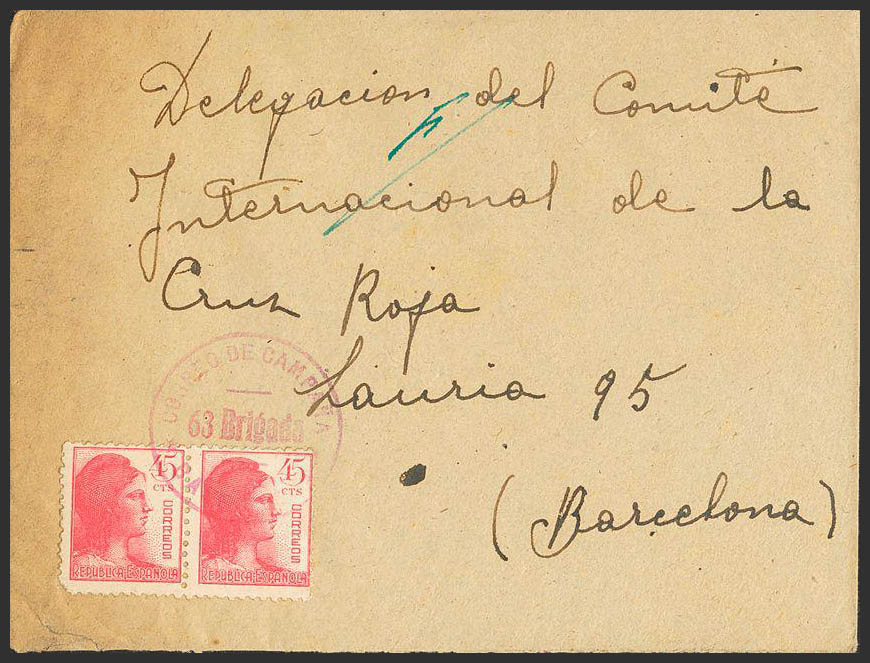 Delegacion del Comité
Internacional de la
Cruz Roja
Lauria 95
(Barcelona)
CORREO DE CAMPAÑA
63 Brigada
45
CTS
CORREOS
REPUBLICA ESPAÑOLA
45
CTS
CORREOS
REPUBLICA ESPAÑOLA